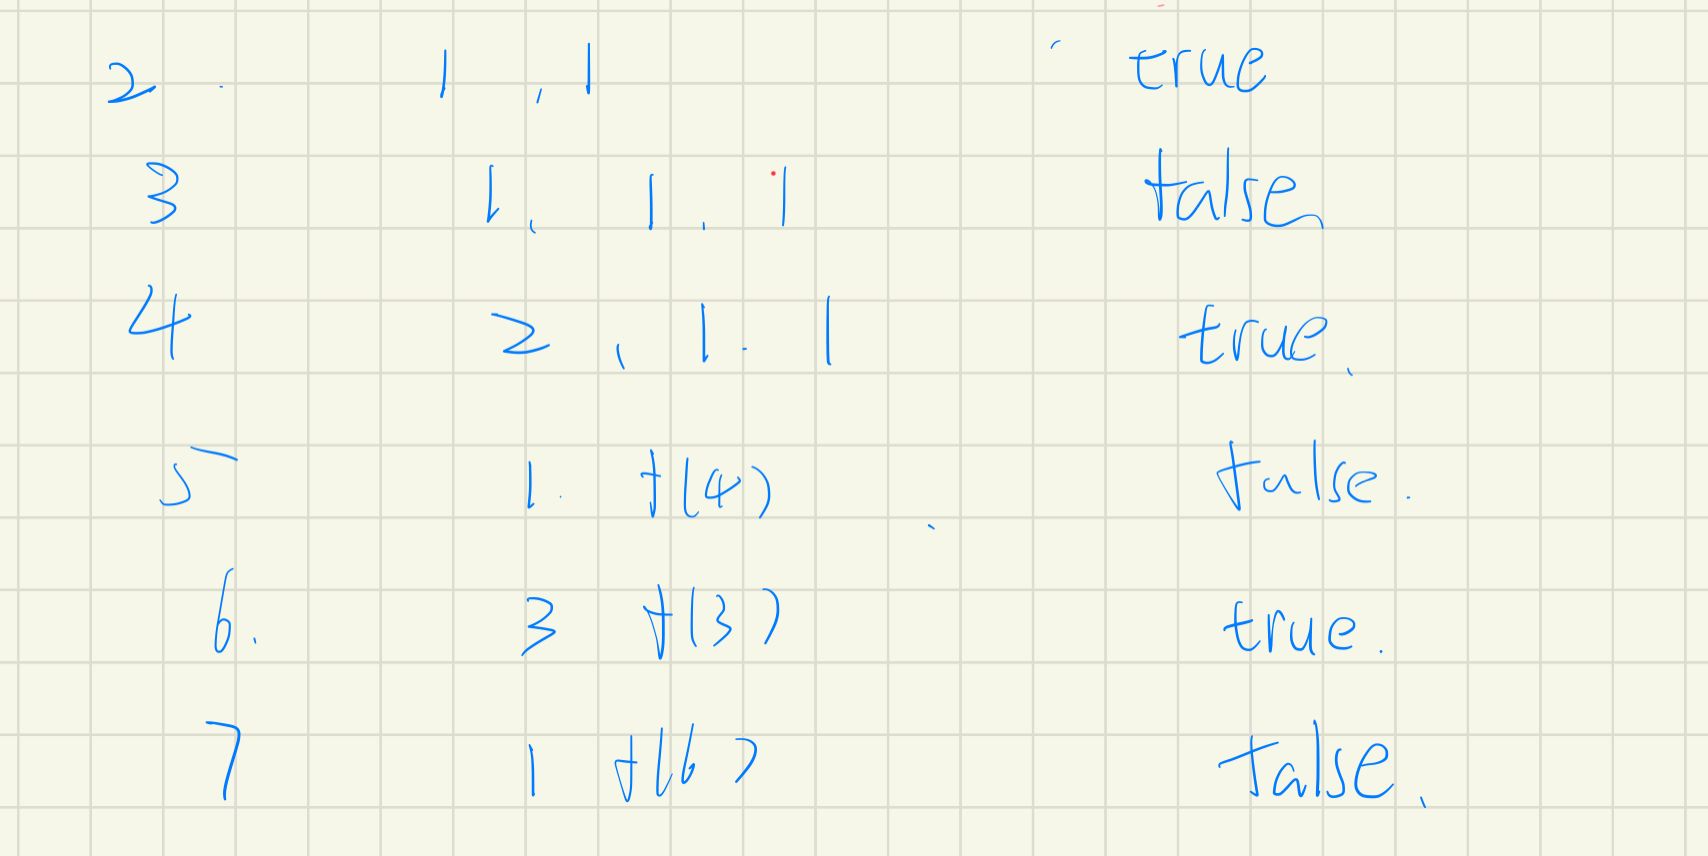 2 . 1 , 1 true
3 1, 1 . 1 false
4 2 , 1 . 1 true.
5 1. f(4) false.
6. 3 f(3) true.
7 1 f(6) false.